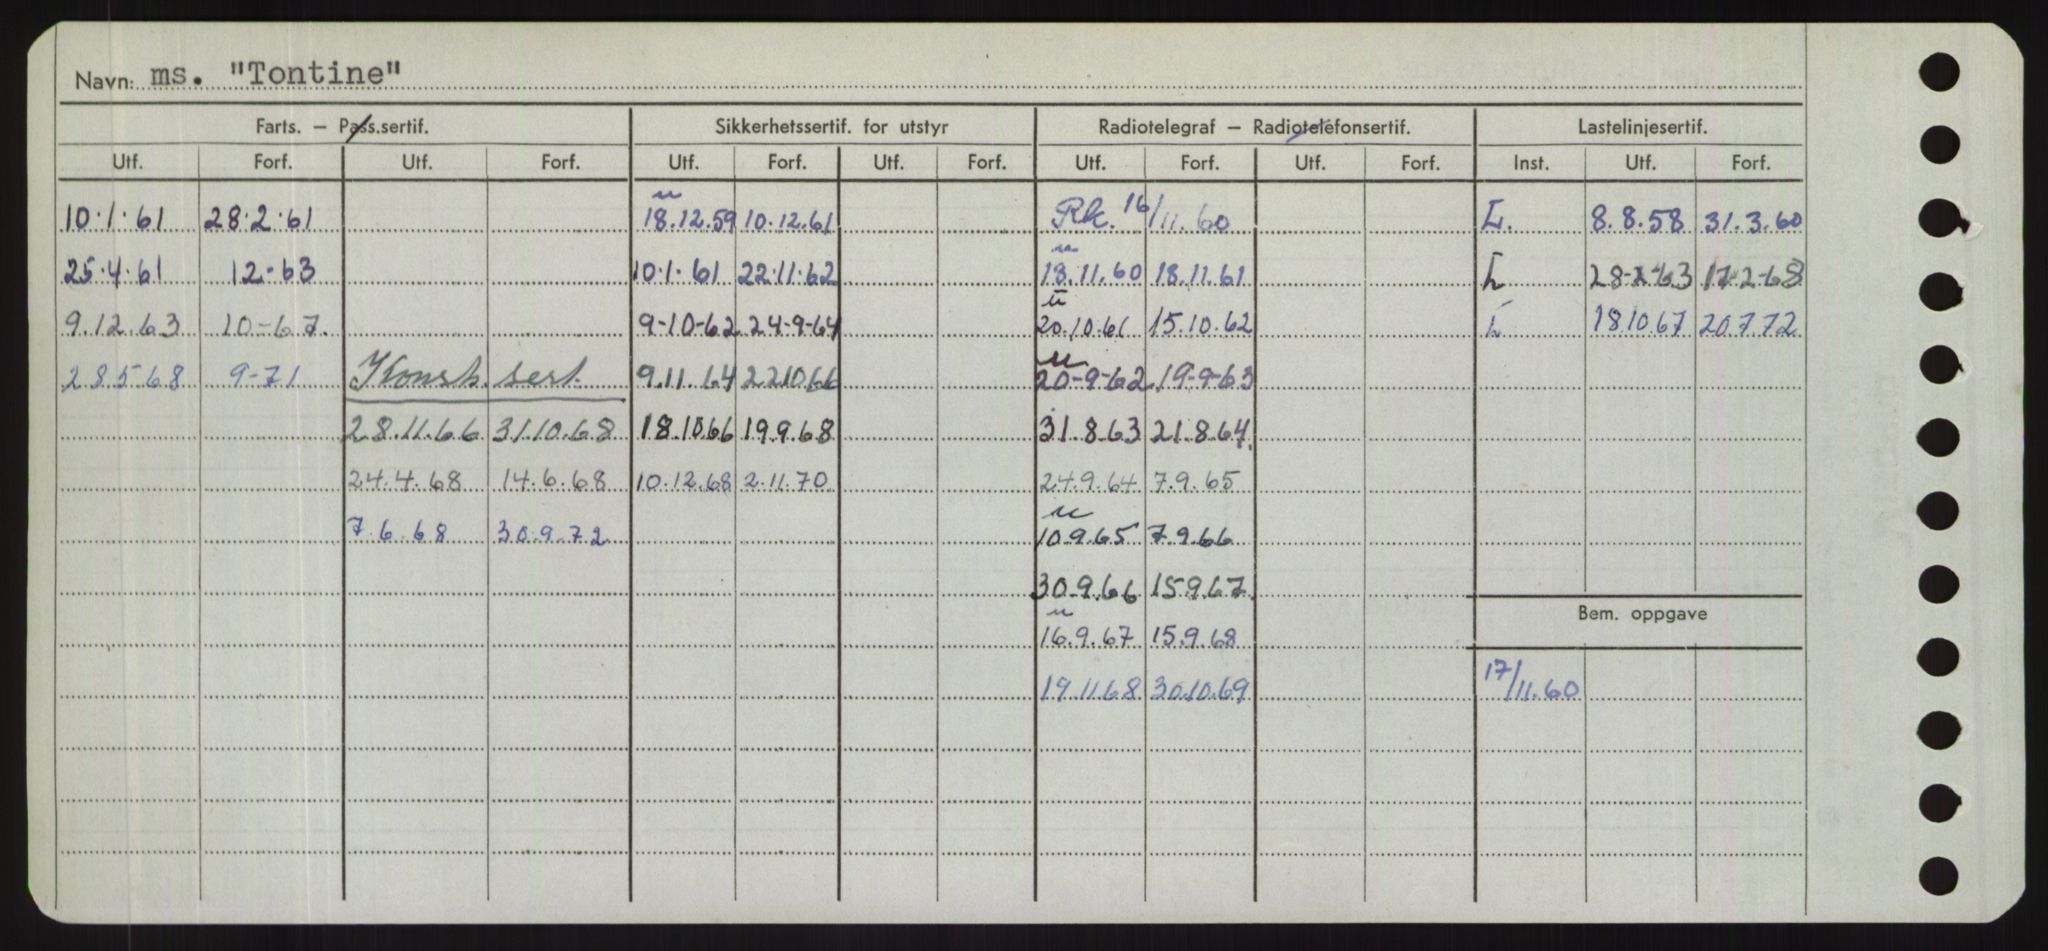 Navn: ms. "Tontine"
Farts. – Pass.sertif. Sikkerhetssertif. for utstyr Radiotelegraf – Radiotelefonsertif. Lastelinjesertif.
Utf. Forf. Utf. Forf. Utf. Forf. Utf. Forf. Utf. Forf. Utf. Forf. Inst. Utf. Forf.
u
10.1.61 28.2.61 18.12.59 10.12.61 Rk. 16/11.60 L. 8.8.58 31.3.60
u
25.4.61 12-63 10.1.61 22.11.62 18.11.60 18.11.61 L 28-2-63 17-2-68
u
9.12.63 10-67. 9-10-62 24-9-64 20.10.61 15.10.62 L 18.10.67 20.7.72
u
28.5.68 9-71 Konst. sert. 9.11.64 22.10.66 20-9-62 19-9-63
28.11.66 31.10.68 18.10.66 19.9.68 31.8.63 21.8.64.
24.4.68 14.6.68 10.12.68 2.11.70 24.9.64 7.9.65
u
7.6.68 30.9.72 10.9.65 7.9.66
30.9.66 15.9.67.
u
Bem. oppgave
16.9.67 15.9.68
19.11.68 30.10.69 17/11.60